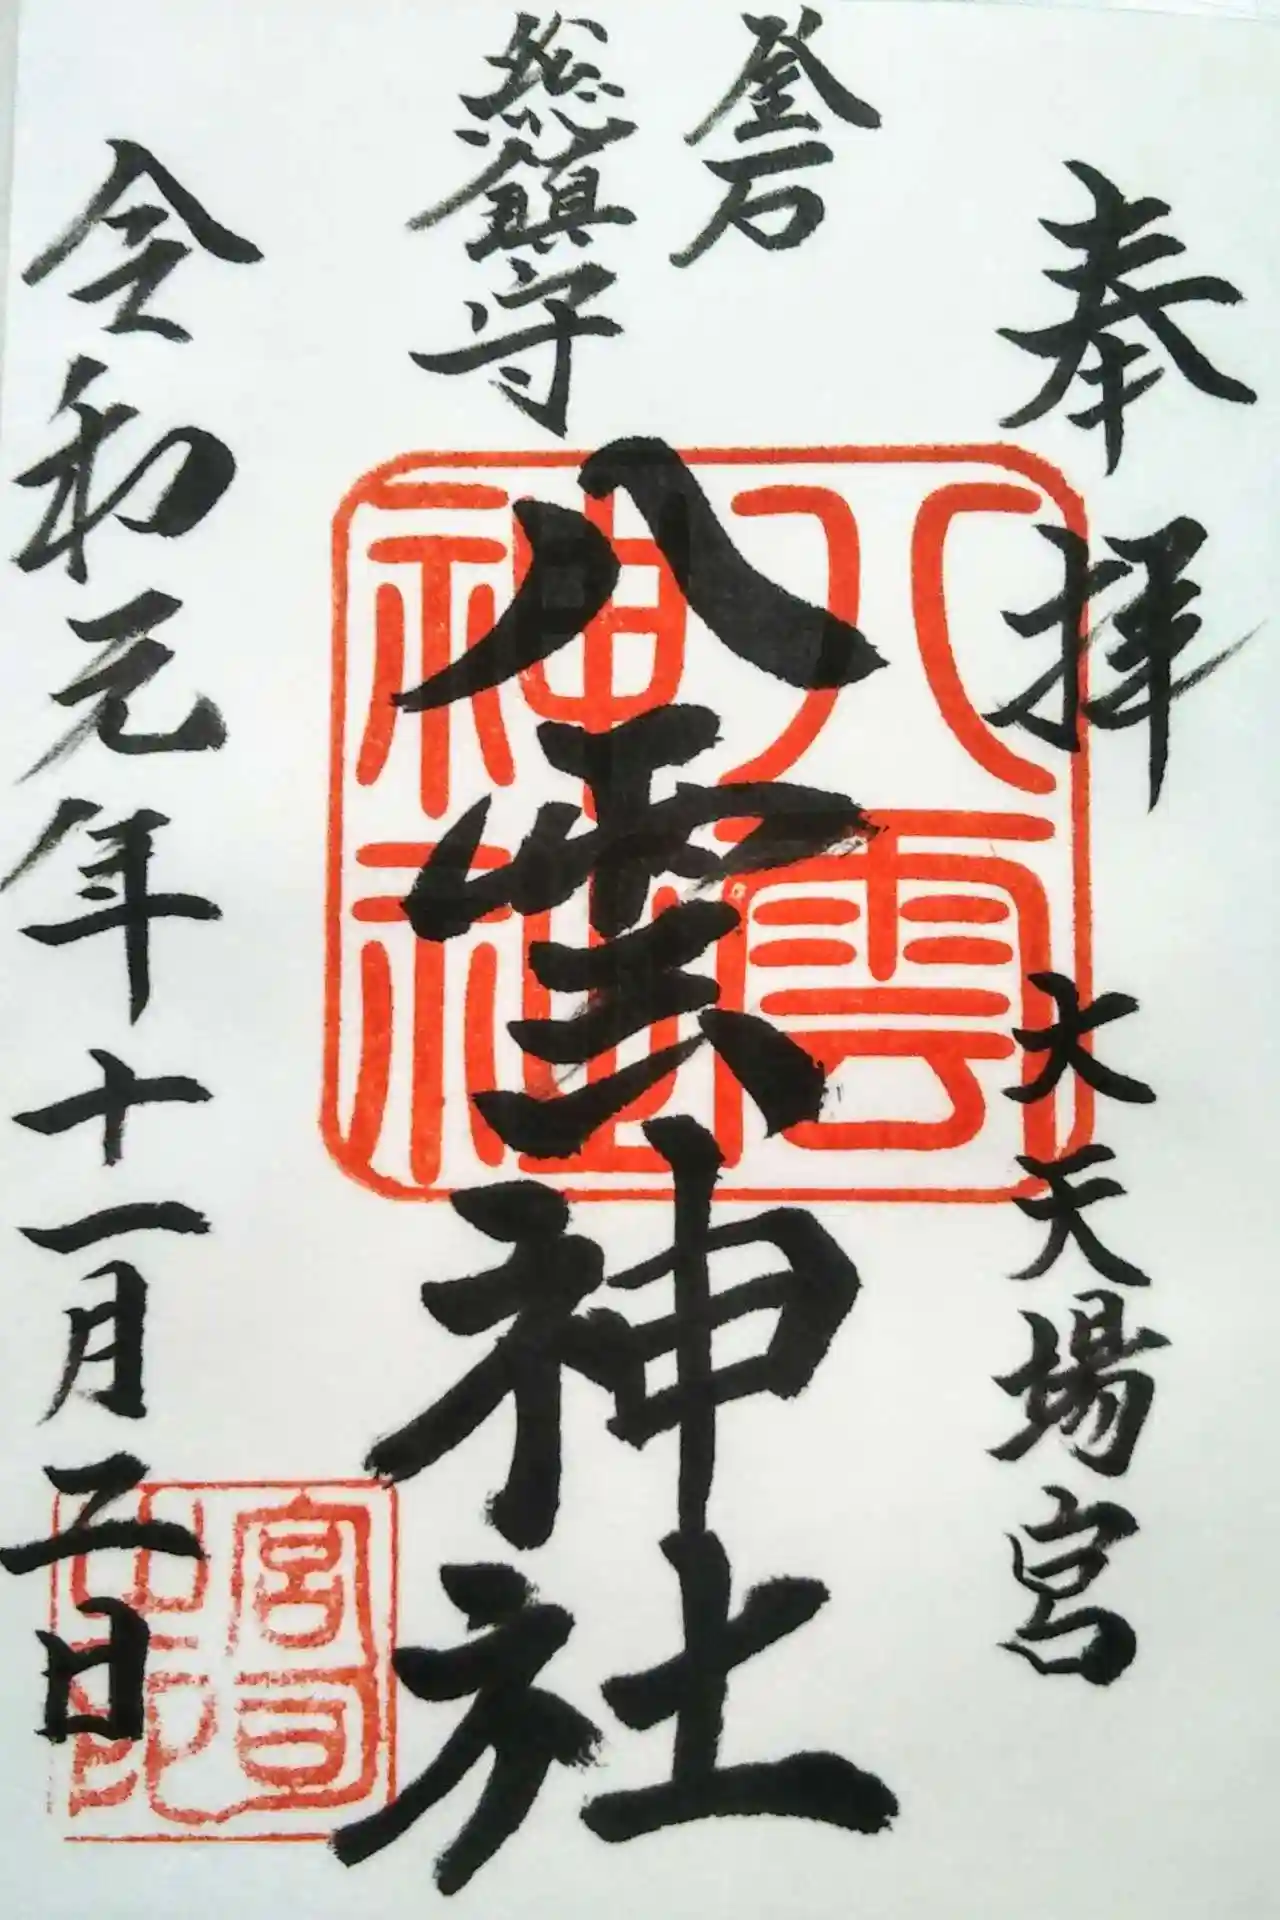 奉拝
大天場宮
釜石
総鎮守
八雲神社
令和元年十一月二日
八雲
神社
宮司
之印